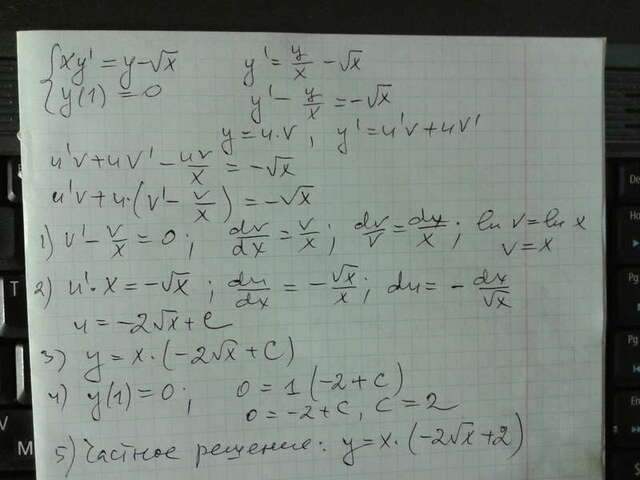 {xy' = y-√x
y' = y/x - √x
{y(1) = 0
y' - y/x = -√x
y = u·v, y' = u'v+uv'
u'v+uv' - uv/x = -√x
u'v+u·(v' - v/x) = -√x
1) v' - v/x = 0; dv/dx = v/x; dv/v = dx/x; ln v = ln x
v = x
2) u'·x = -√x; du/dx = -√x/x; du = -dx/√x
u = -2√x+C
3) y = x·(-2√x+C)
4) y(1) = 0; 0 = 1(-2+C)
0 = -2+C, C = 2
5) Частное решение: y = x·(-2√x+2)